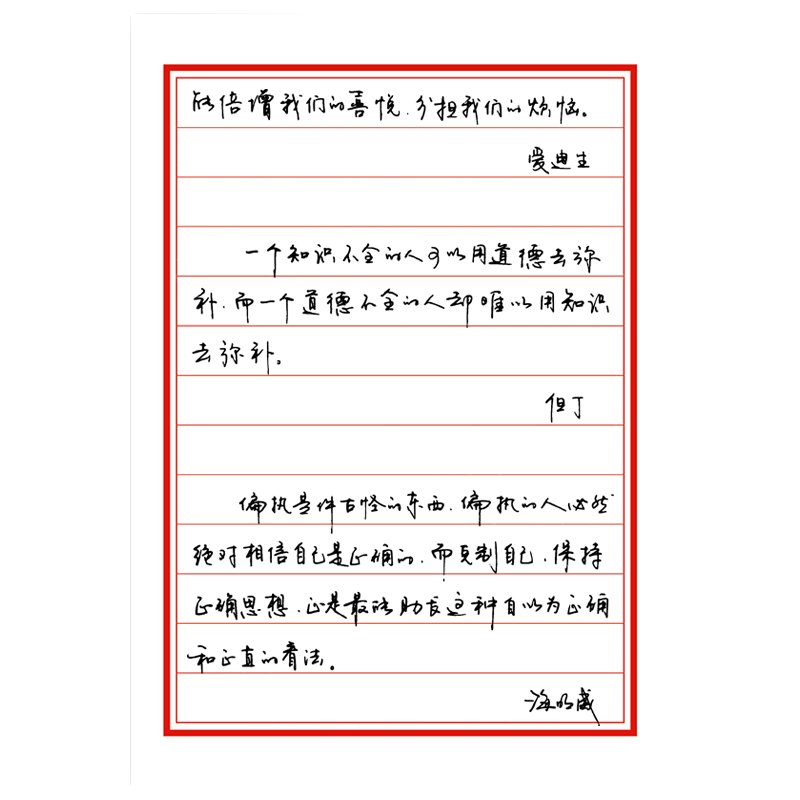 能倍增我们的喜悦，分担我们的烦恼。
爱迪生
一个知识不全的人可以用道德去弥
补，而一个道德不全的人却唯以用知识
去弥补。
但丁
偏执是件古怪的东西，偏执的人必然
绝对相信自己是正确的，而克制自己，保持
正确思想，正是最能助长这种自以为正确
和正直的看法。
海明威